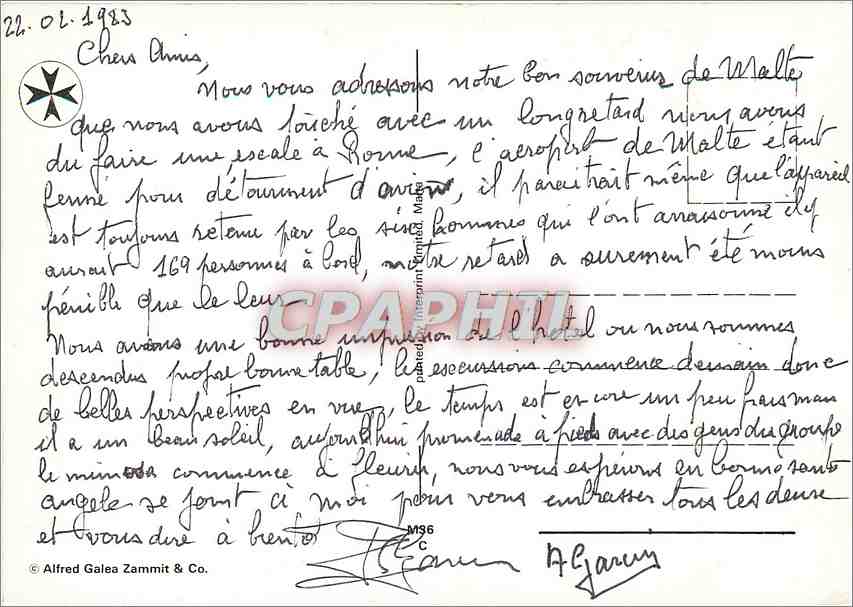 22.02.1983
Chers Amis,
Nous vous adressons notre bon souvenir de Malte
que nous avous touché avec un long retard nous avons
du faire une escale à Rome, l'aeroport de Malte étant
fermé pour détourment d'avion, il paraitrait même que l'appareil
est toujours retenu par les six hommes qui l'ont arraisonné il y
aurait 169 personnes à bord, notre retard a surement été moins
pénible que le leur
Nous avons une bonne impression de l'hotel ou nous sommes
descendus propre bonne table, les escurssions commence demain donc
de belles perspectives en vue, le temps est encore un peu frais mais
il a un beau soleil, aujourd'hui promenade à pieds avec des gens du groupe
le mimosa commence à fleurir, nous vous espérons en bonne santé
angèle se joint à moi pour vous embrasser tous les deux
et vous dire à bientot
M36
C
© Alfred Galea Zammit & Co.
printed by Interprint Limited, Malta
CPAPHIL